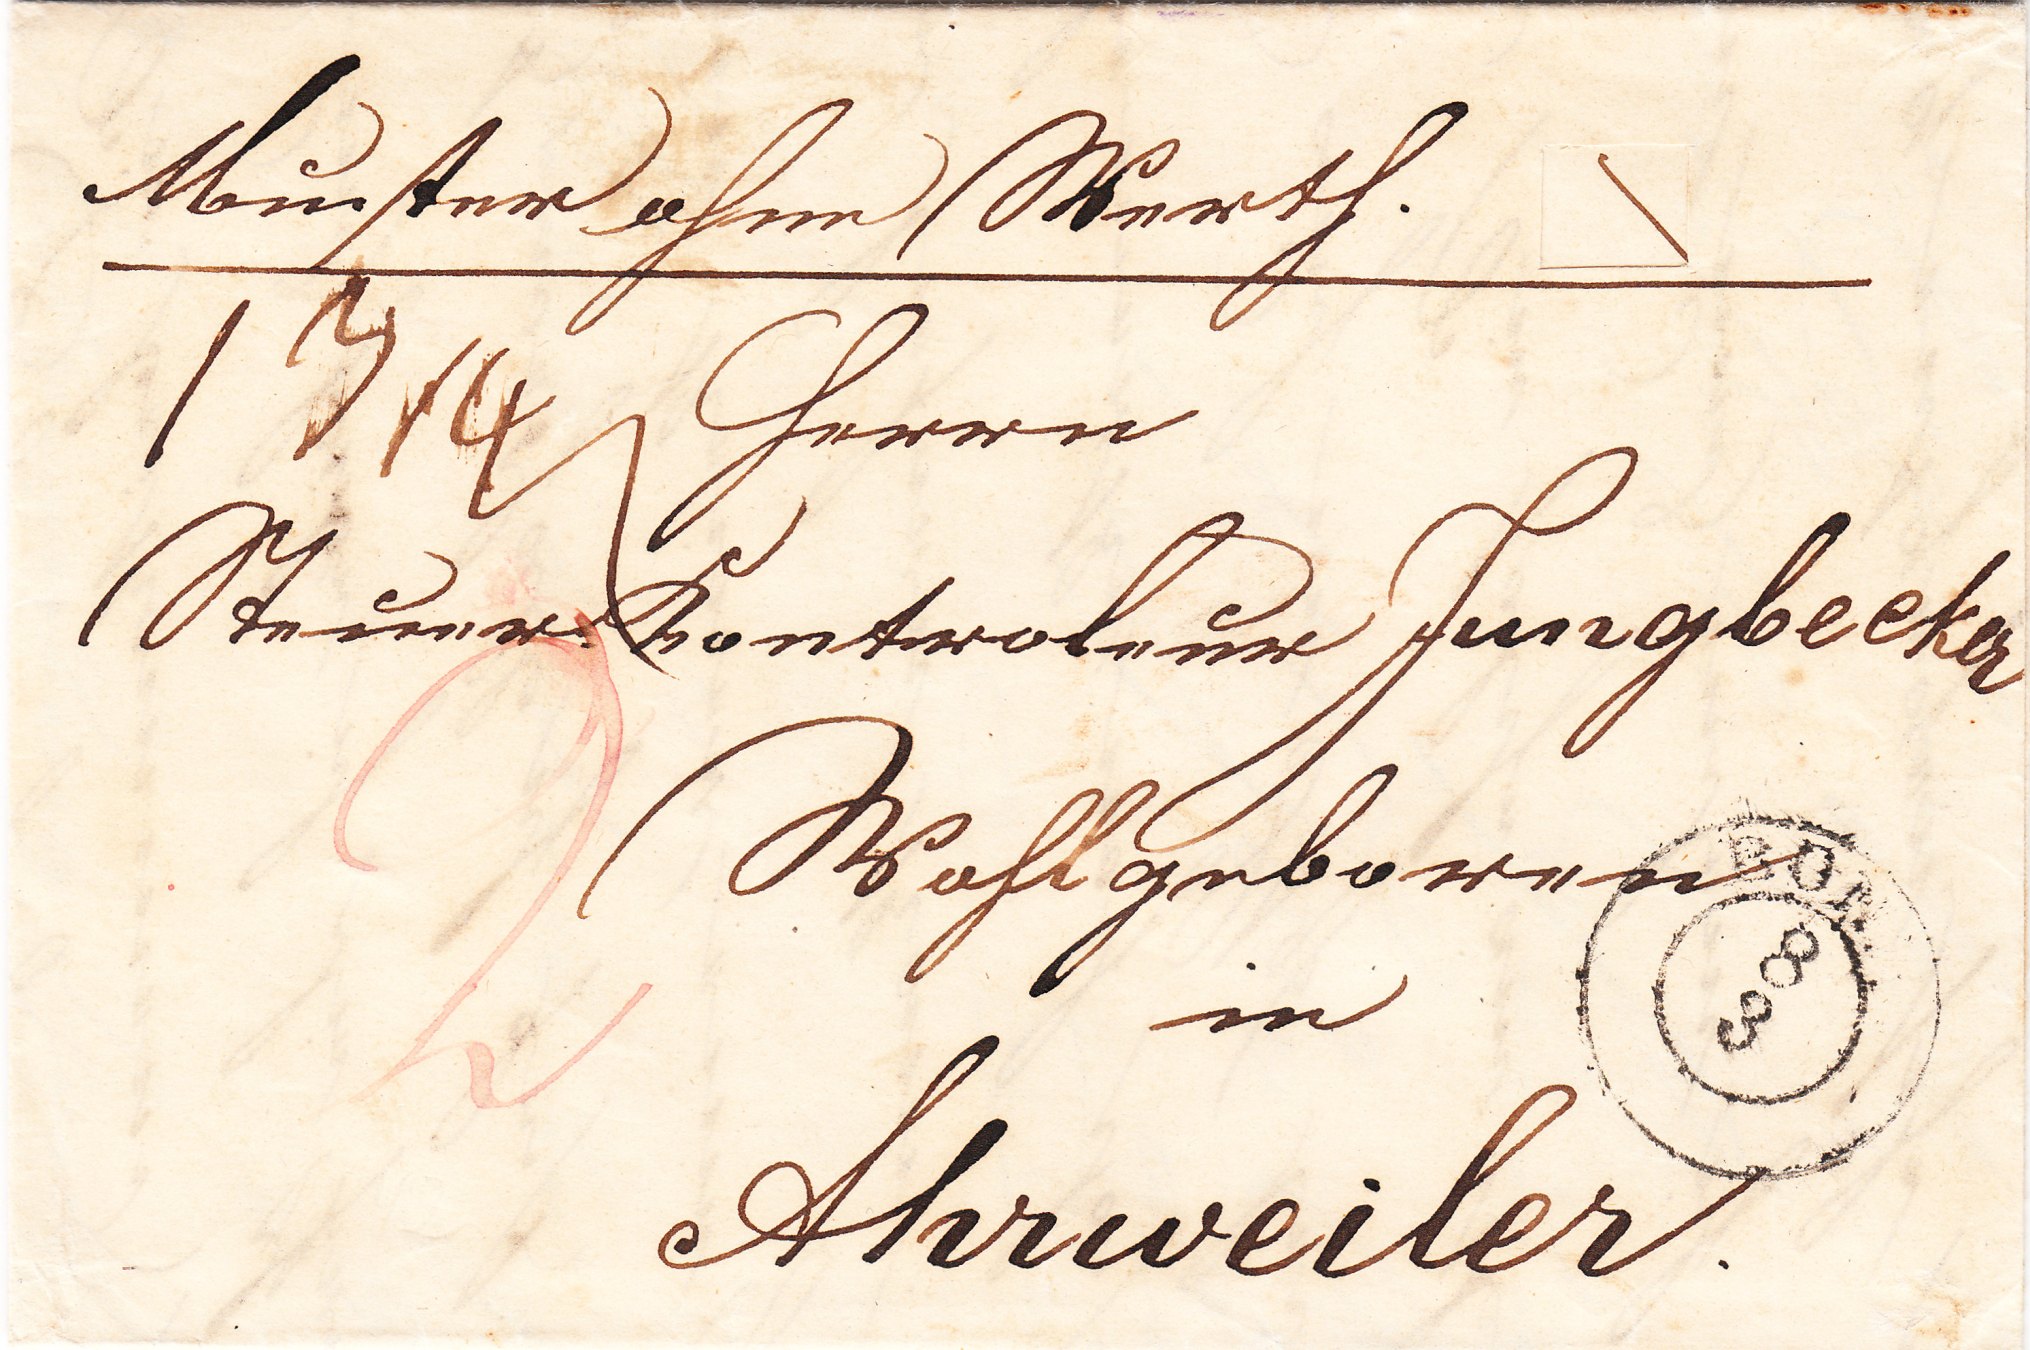 Muster ohne Werth.
Herrn
Steuer-Kontroleur Jungbecker
Wohlgeboren
in
Ahrweiler.
BONN
8
3
2